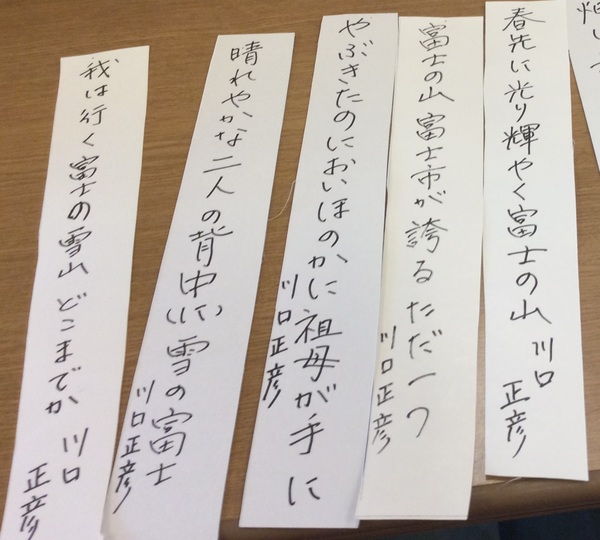 春先に光り輝やく富士の山 川口
正彦
富士の山富士市が誇るただ一つ
川口正彦
やぶきたのにおいほのかに祖母が手に
川口正彦
晴れやかな二人の背中(に)雪の富士
川口正彦
我は行く富士の雪山どこまでか 川口
正彦